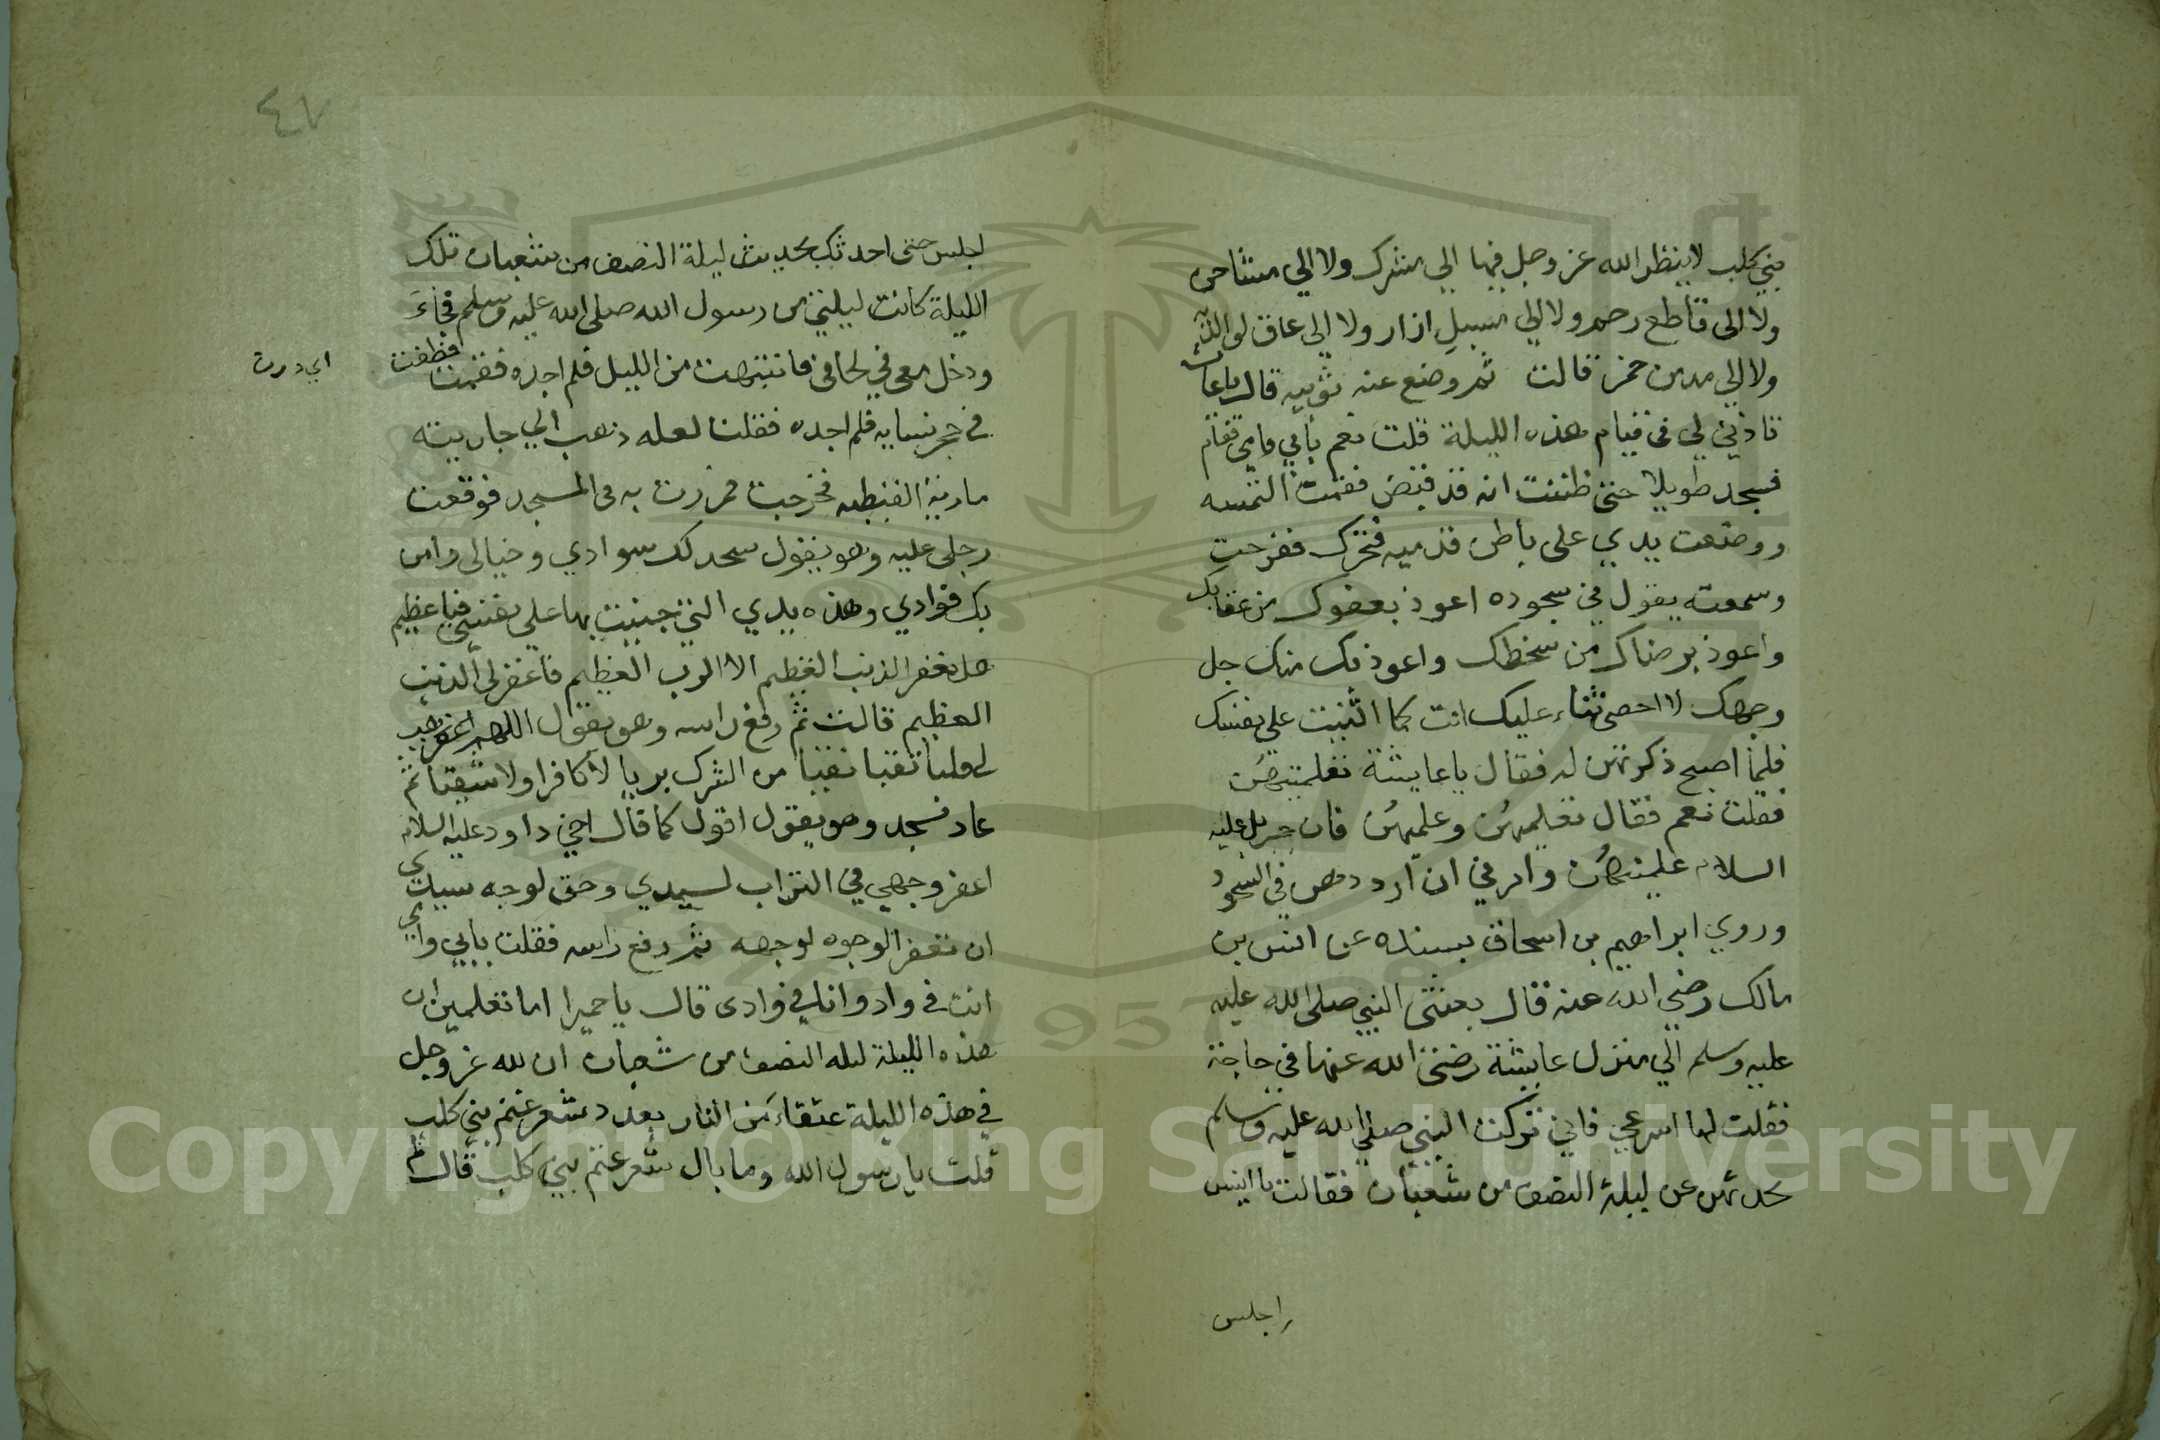 بني كلب لا ينظر الله عز وجل فيها الي مشرك ولا الي مشاحن
ولا الى قاطع رحم ولا الي مسبل ازار ولا الى عاق لوالديه
ولا الي مدمن خمر قالت ثم وضع عنه ثوبيه قال ياعايشة
تاذني لي في قيام هذه الليلة قلت نعم بابي وامي فقام
فسجد طويلا حتى ظننت انه قد قبض فقمت التمسه
ووضعت يدي على باطن قدميه فتحرك ففرحت
وسمعته يقول في سجوده اعوذ بعفوك من عقابك
واعوذ برضاك من سخطك واعوذ بك منك جل
وجهك لا احصي ثناء عليك انت كما اثنيت على نفسك
فلما اصبح ذكرتهن له فقال ياعايشة تعلمتيهن
فقلت نعم فقال تعلميهن وعلميهن فان جبريل عليه
السلام علمنيهن وامرني ان ارددهن في السجود
وروي ابراهيم بن اسحاق بسنده عن انس بن
مالك رضي الله عنه قال بعثني النبي صلى الله عليه
عليه وسلم الي منزل عايشة رضي الله عنها في حاجة
فقلت لها اسرعي فاني تركت النبي صلى الله عليه وسلم
يحدثهن عن ليلة النصف من شعبان فقالت يا انيس
اجلس
٤٧
اجلس حتى احدثك بحديث ليلة النصف من شعبان تلك
الليلة كانت ليلتي من رسول الله صلى الله عليه وسلم فجاء
ودخل معي في لحافي فانتبهت من الليل فلم اجده فقمت فطفت
اي درت
في حجر نسايه فلم اجده فقلت لعله ذهب الي جاريته
مارية القبطيه فخرجت فمررت به في المسجد فوقعت
رجلى عليه وهو يقول سجد لك سوادي وخيالي وامن
بك فوادي وهذه يدي التي جنيت بها على نفسي فيا عظيم
هل يغفر الذنب العظيم الا الرب العظيم فاغفر لي الذنب
العظيم قالت ثم رفع راسه وهو يقول اللهم هب
لي قلبا تقيا نقيا من الشرك بريا لا كافرا ولا شقيا ثم
عاد فسجد وهو يقول اقول كما قال اخي داود عليه السلام
اعفر وجهي في التراب لسيدي وحق لوجه سيدي
ان تعفر الوجوه لوجهه ثم رفع راسه فقلت بابي وامي
انت في واد وانا في وادى قال ياحميرا اما تعلمين ان
هذه الليلة ليله النصف من شعبان ان لله عز وجل
في هذه الليلة عتقاء من النار بعدد شعر غنم بني كلب
قلت يا رسول الله وما بال شعر غنم بني كلب قال
Copyright © King Saud University
1957